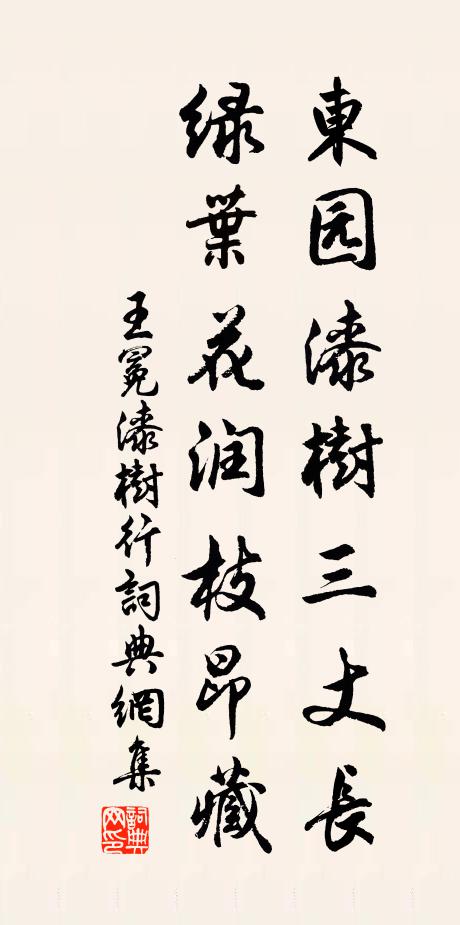 東园漆樹三丈長
绿葉花润枝昂藏
王冕漆樹行詞典網集
詞典网印